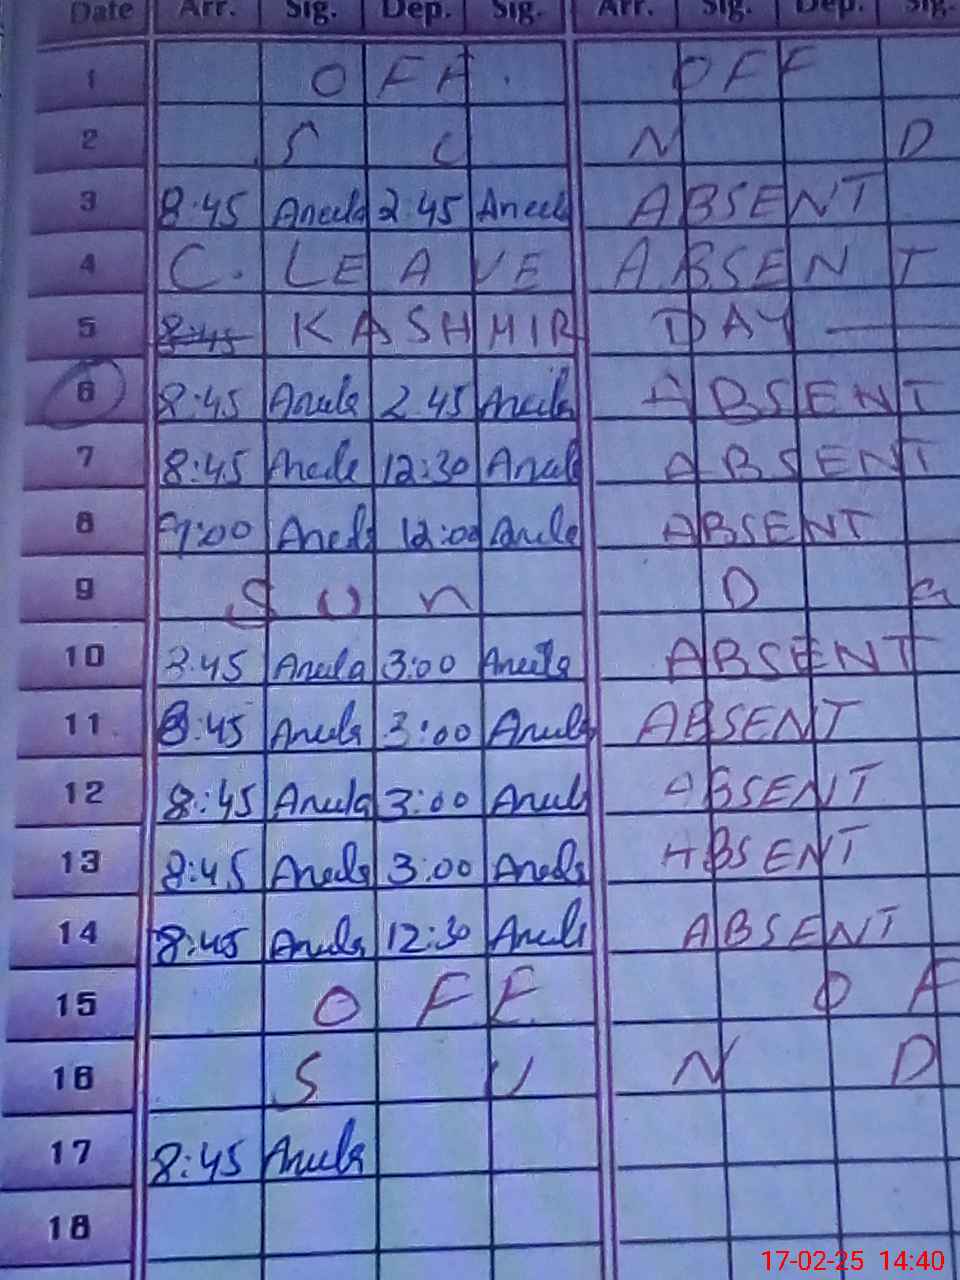 Date Arr. Sig. Dep. Sig. Arr. Sig. Dep. Sig.
1 OFF OFF
2 S U N D
3 8:45 Aneela 2:45 Aneela ABSENT
4 C. LEAVE ABSENT
5 8:45 KASHMIR DAY
6 8:45 Aneela 2:45 Aneela ABSENT
7 8:45 Aneela 12:30 Aneela ABSENT
8 9:00 Aneela 12:00 Aneela ABSENT
9 S U n D a
10 8:45 Aneela 3:00 Aneela ABSENT
11 8:45 Aneela 3:00 Aneela ABSENT
12 8:45 Aneela 3:00 Aneela ABSENT
13 8:45 Aneela 3:00 Aneela ABSENT
14 8:45 Aneela 12:30 Aneela ABSENT
15 OFF O F
16 S U N D
17 8:45 Aneela
18
17-02-25 14:40